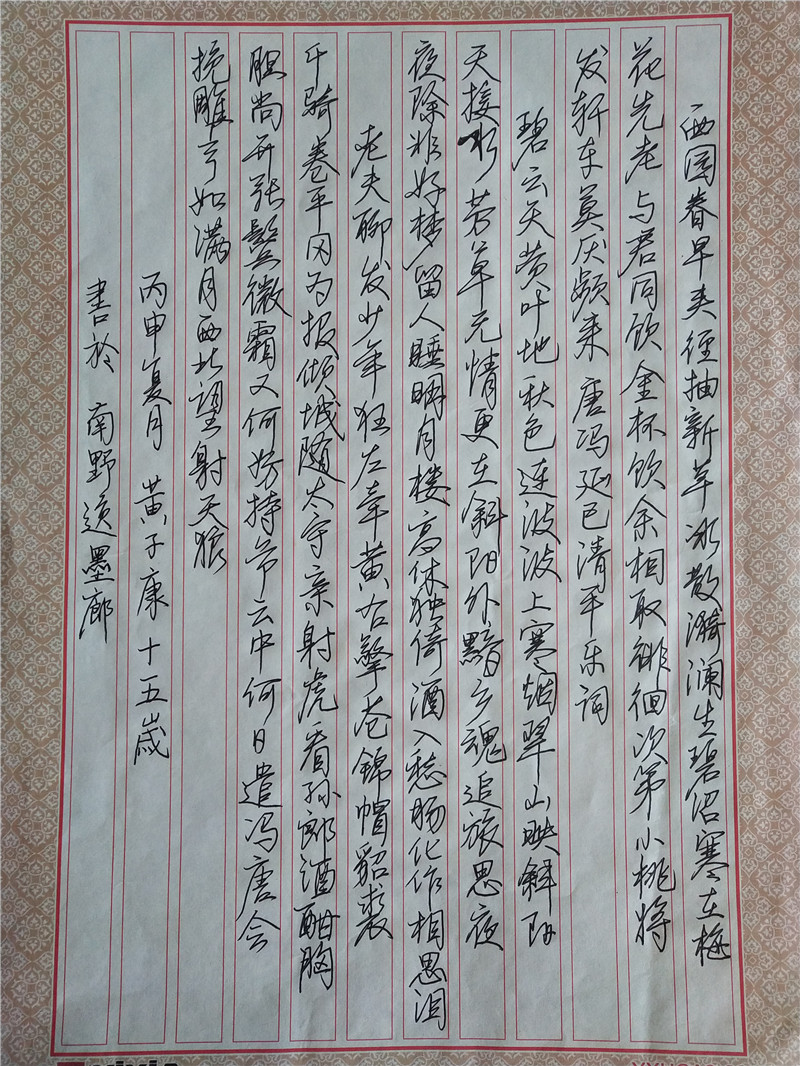 西园春早夹径抽新草冰散漪澜生碧沼寒在梅
花先老与君同饮金杯饮余相取徘徊次第小桃将
发轩车莫厌频来 唐冯延巳清平乐词
碧云天黄叶地秋色连波波上寒烟翠山映斜阳
天接水芳草无情更在斜阳外黯乡魂追旅思夜
夜除非好梦留人睡明月楼高休独倚酒入愁肠化作相思泪
老夫聊发少年狂左牵黄右擎苍锦帽貂裘
千骑卷平冈为报倾城随太守亲射虎看孙郎酒酣胸
胆尚开张鬓微霜又何妨持节云中何日遣冯唐会
挽雕弓如满月西北望射天狼
丙申夏月 黄子康十五歲
書於 南野墨廊